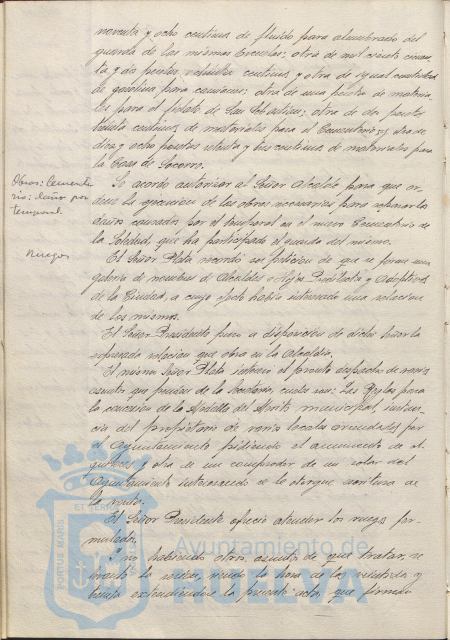 noventa y ocho centimos de fluido para alumbrado del
guarda de las mismas Escuelas; otra de mil ciento cincuen-
ta y dos pesetas, céntimos y otra de igual cantidad
de gasolina para camiones; otra de una peseta de materia-
les para el de San Sebastian; otra de dos pesetas
treinta centimos de materiales para el Cementerio y otra de
diez y ocho pesetas ochenta y tres centimos de materiales para
la Casa de Socorro.
Obras: Cemente-
rio: daños por
temporal.
Se acordó autorizar al Señor Alcalde para que or-
dene la ejecucion de las obras necesarias para reparar los
daños causados por el temporal en el nuevo Cementerio de
la Soledad, que ha participado el guarda del mismo.
Ruegos
El Señor Plata recordó su peticion de que se forme una
galeria de nombres de Alcaldes e Hijos Predilectos y Adoptivos
de la Ciudad, a cuyo efecto habia interesado una relacion
de los mismos.
El Señor Presidente puso a disposicion de dicho Señor la
expresada relacion que obra en la Alcaldia.
El mismo Señor Plata interesó el pronto despacho de varios
asuntos que penden de la Secretaria, cuales son: Las Reglas para
la concesion de la Medalla del Merito municipal, instan-
cia del propietario de varios locales arrendados por
el Ayuntamiento pidiendo el aumento de al-
quileres y otra de un comprador de un solar del
Ayuntamiento interesando se le otorgue escritura de
la venta.
El Señor Presidente ofreció atender los ruegos for-
mulados.
Y no habiendo otros asuntos de que tratar, se
levantó la sesion, siendo la hora de las veintiuna y
treinta extendiendose la presente acta, que firman
PORTUS MARIS
ET TERRAE
Ayuntamiento de
HUELVA